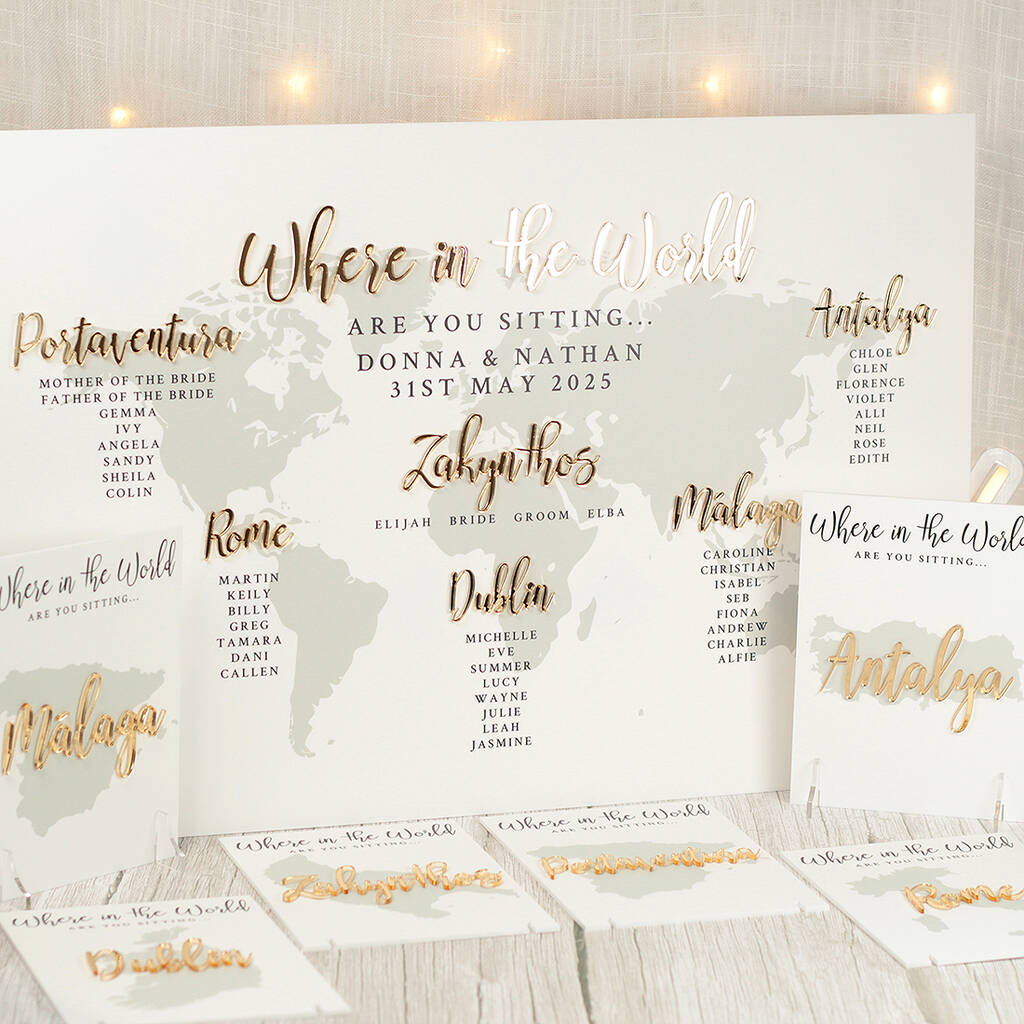 Where in the World
ARE YOU SITTING...
DONNA & NATHAN
31ST MAY 2025
Portaventura
MOTHER OF THE BRIDE
FATHER OF THE BRIDE
GEMMA
IVY
ANGELA
SANDY
SHEILA
COLIN
Antalya
CHLOE
GLEN
FLORENCE
VIOLET
ALLI
NEIL
ROSE
EDITH
Zakynthos
ELIJAH BRIDE GROOM ELBA
Rome
MARTIN
KEILY
BILLY
GREG
TAMARA
DANI
CALLEN
Dublin
MICHELLE
EVE
SUMMER
LUCY
WAYNE
JULIE
LEAH
JASMINE
Málaga
CAROLINE
CHRISTIAN
ISABEL
SEB
FIONA
ANDREW
CHARLIE
ALFIE
Where in the World
ARE YOU SITTING...
Málaga
Where in the World
ARE YOU SITTING...
Antalya
Where in the World
ARE YOU SITTING...
Zakynthos
Where in the World
ARE YOU SITTING...
Portaventura
Where in the World
ARE YOU SITTING...
Rome
Where in the World
ARE YOU SITTING...
Dublin